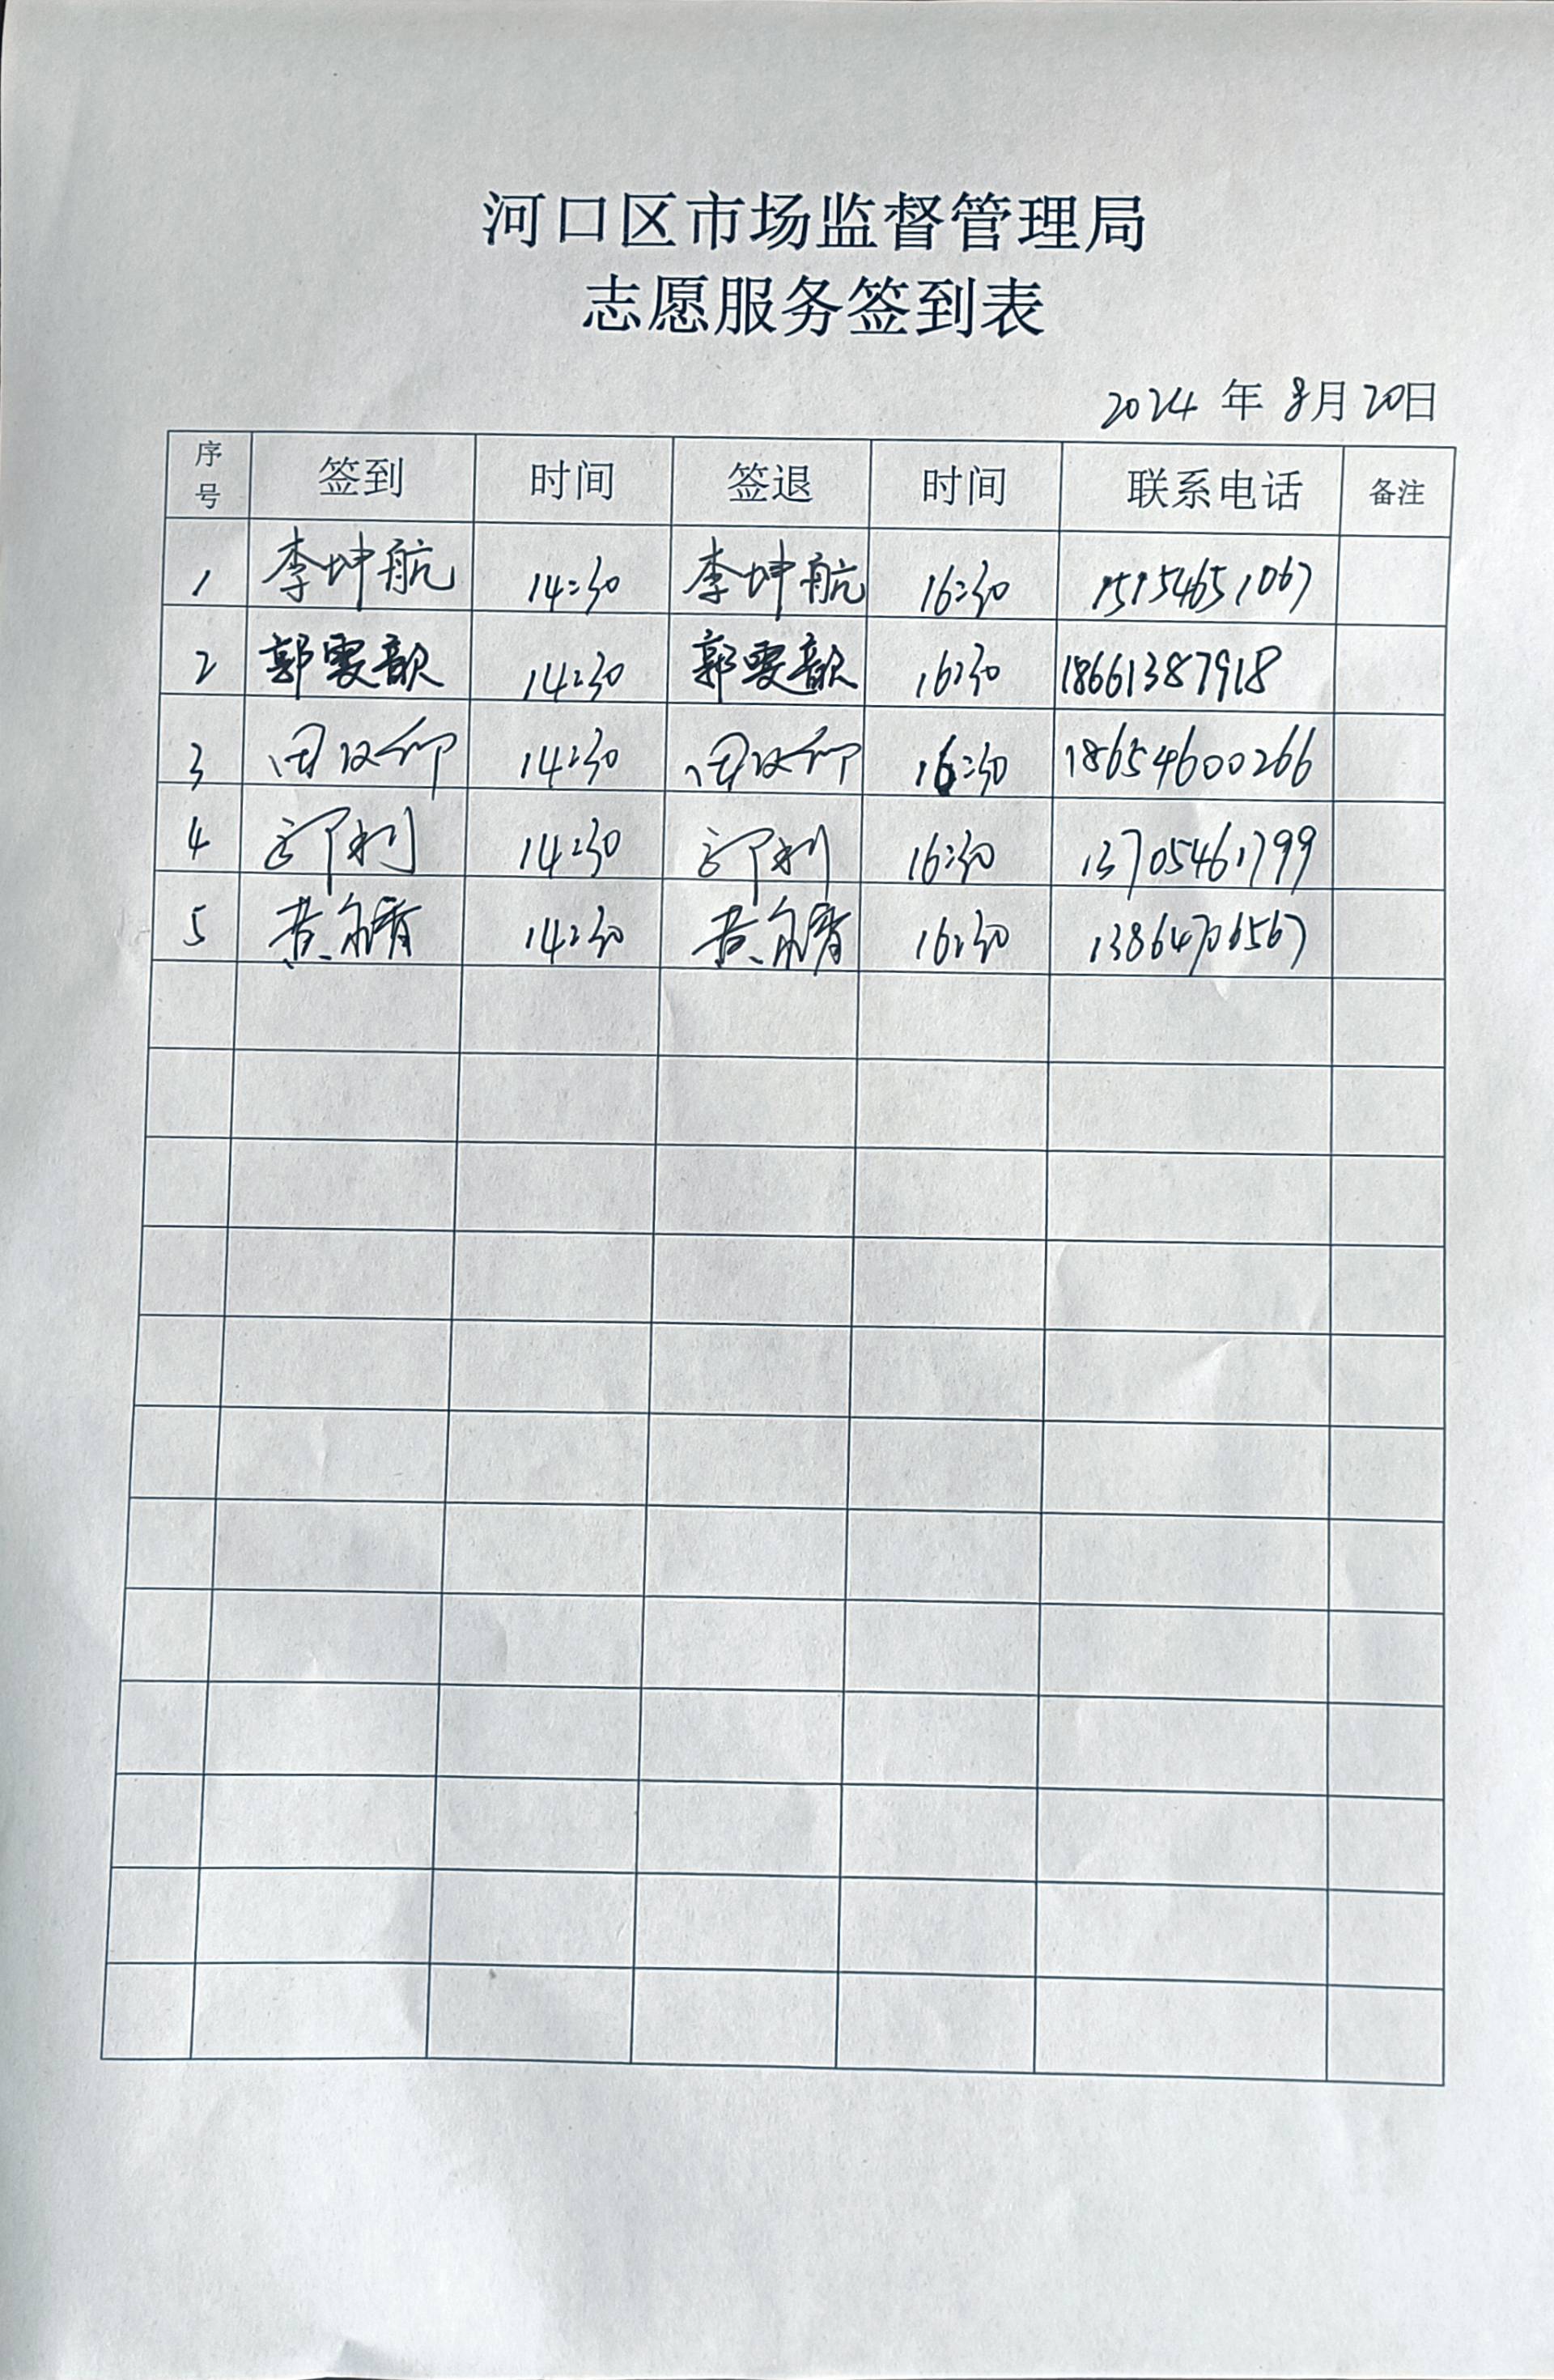 河口区市场监督管理局
志愿服务签到表
2024 年 8月20日
序号 签到 时间 签退 时间 联系电话 备注
1 李坤航 14:30 李坤航 16:30 15154651067
2 郭雯歆 14:30 郭雯歆 16:30 18661387918
3 田 14:30 田 16:30 18654600266
4 利 14:30 利 16:30 13705461799
5 黄 14:30 黄 16:30 13864706567